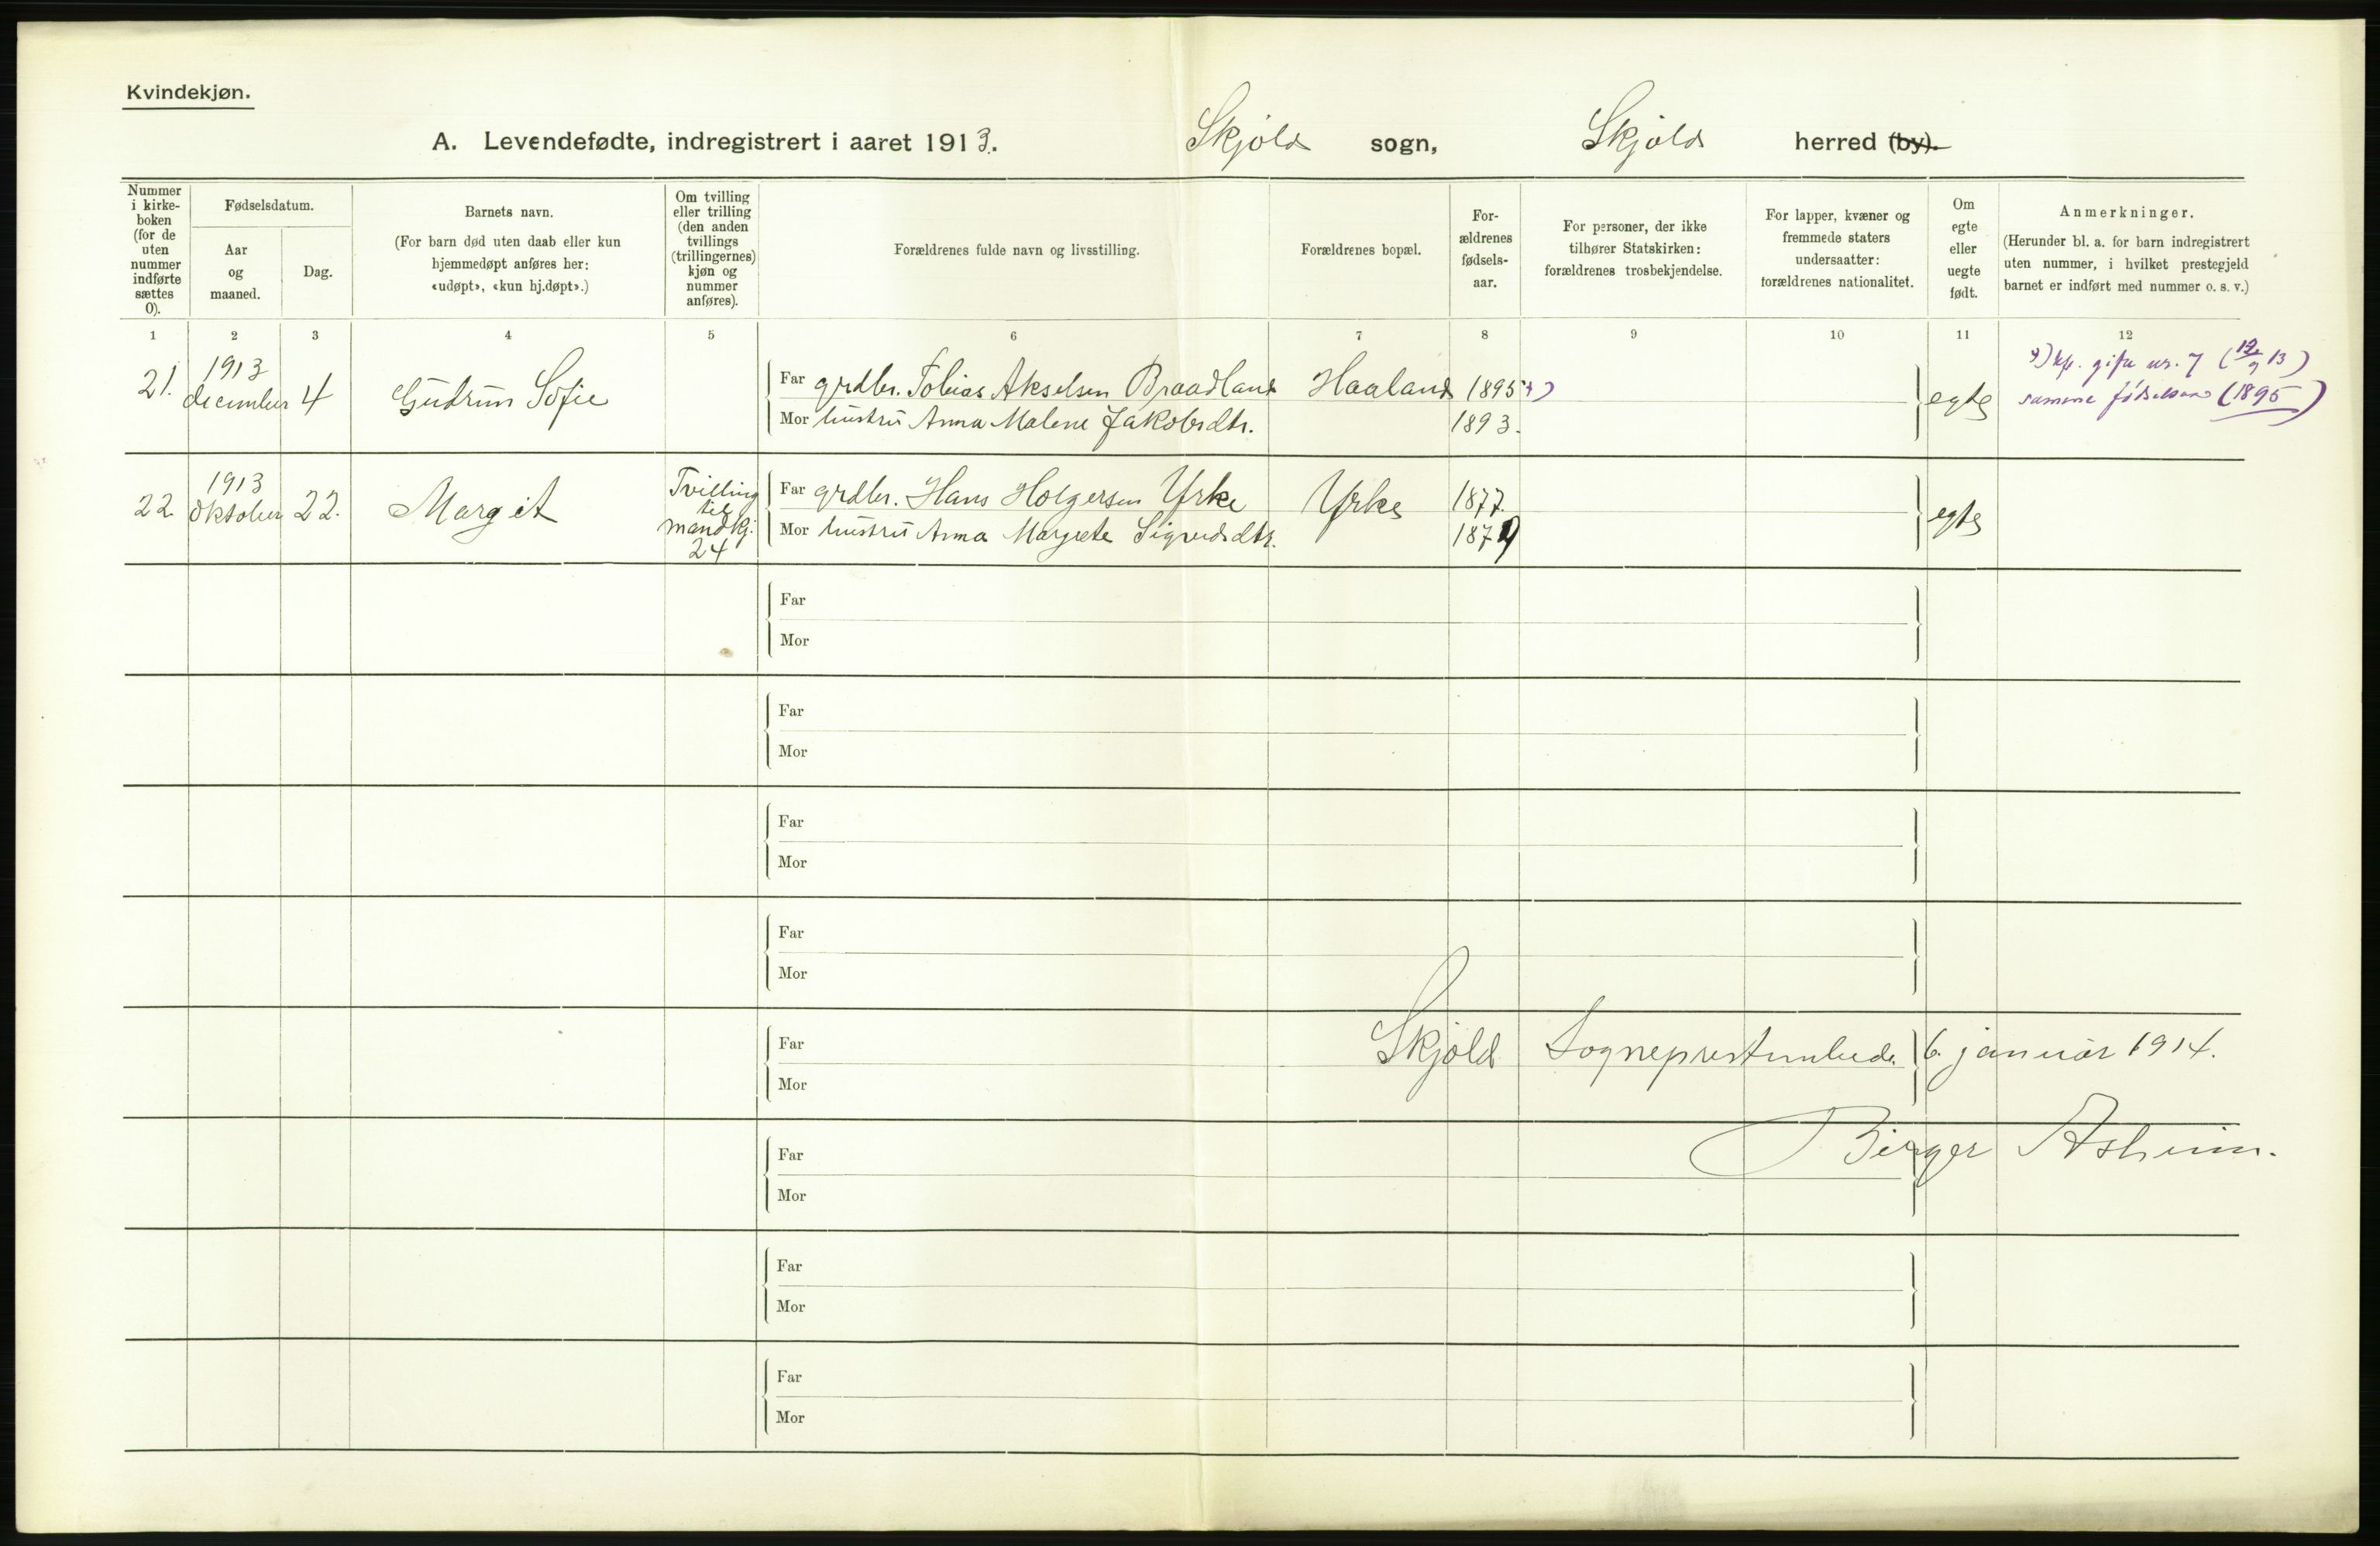 Kvindekjøn.
A. Levendefødte, indregistrert i aaret 1913. Skjold sogn, Skjold herred (by).
Nummer i kirke-boken (for de uten nummer indførte sættes 0).
Fødselsdatum.
Aar og maaned.
Dag.
Barnets navn.
(For barn død uten daab eller kun hjemmedøpt anføres her: «udøpt», «kun hj.døpt».)
Om tvilling eller trilling (den anden tvillings (trillingernes) kjøn og nummer anføres).
Forældrenes fulde navn og livsstilling.
Forældrenes bopæl.
For-ældrenes fødsels-aar.
For personer, der ikke tilhører Statskirken: forældrenes trosbekjendelse.
For lapper, kvæner og fremmede staters undersaatter: forældrenes nationalitet.
Om egte eller uegte født.
Anmerkninger.
(Herunder bl. a. for barn indregistrert uten nummer, i hvilket prestegjeld barnet er indført med nummer o. s. v.)
1 2 3 4 5 6 7 8 9 10 11 12
21. 1913 december 4 Gudrun Sofie
Far grdbr. Tobias Akselsen Braadland Haaland 1895
Mor hustru Anna Malene Jakobsdtr. 1893.
egte
gifte nr. 7 (12/9 13)
samme fødselsaar (1895)
22. 1913 oktober 22. Margit
Tvilling til mandkj. 24
Far grdbr. Hans Holgersen Yrke Yrke 1877.
Mor hustru Anna Margrete Sigvardsdtr. 1879
egte
Far
Mor
Far
Mor
Far
Mor
Far
Mor
Far
Mor
Skjold Sogneprestembede 6. januar 1914.
Far
Mor
Birger Asheim.
Far
Mor
Far
Mor